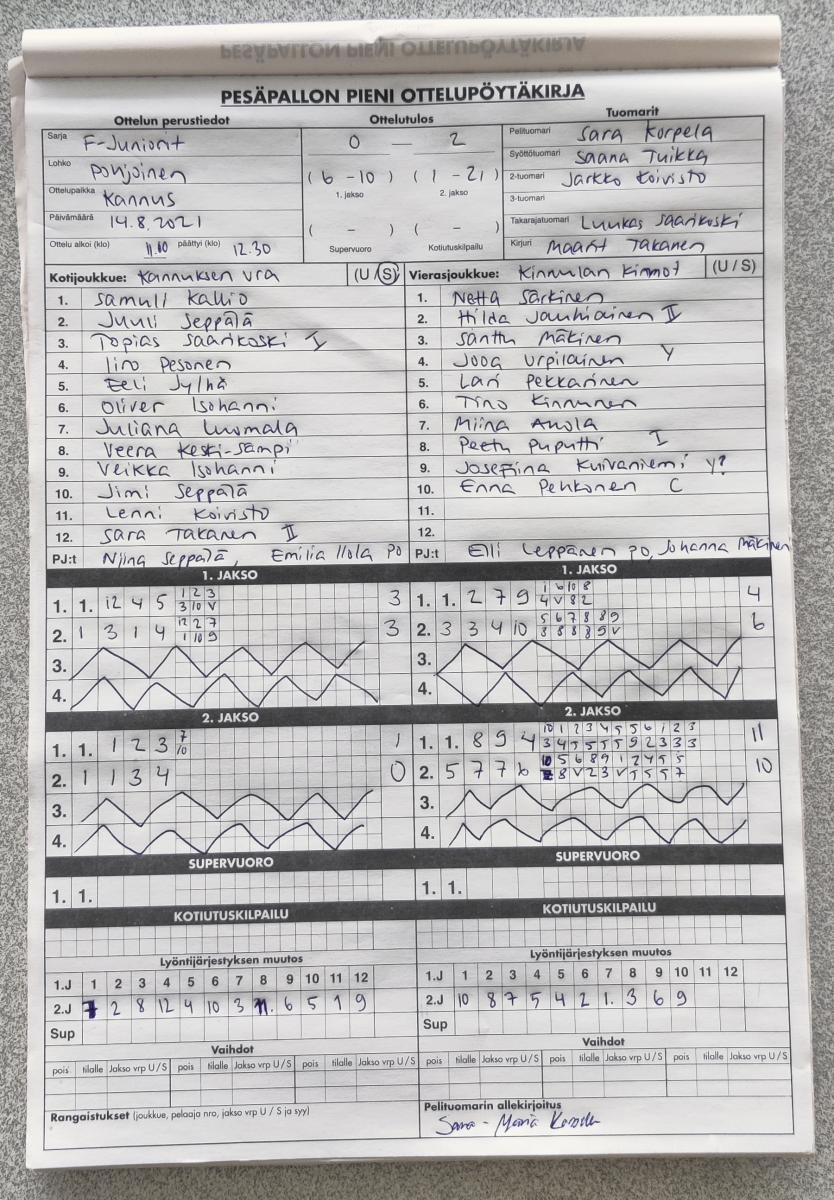 PESÄPALLON PIENI OTTELUPÖYTÄKIRJA
PESÄPALLON PIENI OTTELUPÖYTÄKIRJA
Ottelun perustiedot
Sarja F-Juniorit
Lohko Pohjoinen
Ottelupaikka Kannus
Päivämäärä 14.8.2021
Ottelu alkoi (klo) 11.00 päättyi (klo) 12.30
Ottelutulos
0 — 2
(6 - 10) (1 - 21)
1. jakso 2. jakso
( - ) ( - )
Supervuoro Kotiutuskilpailu
Tuomarit
Pelituomari Sara Korpela
Syöttötuomari Saana Tuikka
2-tuomari Jarkko Koivisto
3-tuomari
Takarajatuomari Luukas Saarikoski
Kirjuri Maarit Takanen
Kotijoukkue: Kannuksen Ura (U/S)
1. Samuli Kallio
2. Juuli Seppälä
3. Topias Saarikoski I
4. Iiro Pesonen
5. Eeli Jylhä
6. Oliver Isohanni
7. Juliana Luomala
8. Veera Keski-Sämpi
9. Veikka Isohanni
10. Jimi Seppälä
11. Lenni Koivisto
12. Sara Takanen II
PJ:t Niina Seppälä, Emilia Ilola PO
Vierasjoukkue: Kinnulan Kinnot (U/S)
1. Netta Särkinen
2. Hilda Jauhiainen II
3. Santtu Mäkinen
4. Jooa Urpilainen Y
5. Lari Pekkarinen
6. Tino Kinnunen
7. Miina Ahola
8. Peetu Puputti I
9. Josefiina Kuivaniemi Y?
10. Enna Penkonen C
11.
12.
PJ:t Elli Leppänen PO, Johanna Mäkinen
1. JAKSO
1. 1. 12 4 5 1 2 3 3
3 10 V
2. 1 3 1 4 12 2 7 3
1 10 9
3.
4.
1. JAKSO
1. 1. 2 7 9 1 6 10 8 4
4 V 8 2
2. 3 3 4 10 5 6 7 8 8 9 6
8 8 8 8 9 V
3.
4.
2. JAKSO
1. 1. 1 2 3 7 1
10
2. 1 1 3 4 0
3.
4.
2. JAKSO
1. 1. 8 9 4 10 1 2 3 4 5 5 6 1 2 3 11
3 4 5 5 5 5 9 2 3 3 3
2. 5 7 7 6 10 5 6 8 9 1 2 4 5 5 10
8 V 2 3 V 5 5 5 7
3.
4.
SUPERVUORO
1. 1.
SUPERVUORO
1. 1.
KOTIUTUSKILPAILU
KOTIUTUSKILPAILU
Lyöntijärjestyksen muutos
1.J 1 2 3 4 5 6 7 8 9 10 11 12
2.J 7 2 8 12 4 10 3 11. 6 5 1 9
Sup
Lyöntijärjestyksen muutos
1.J 1 2 3 4 5 6 7 8 9 10 11 12
2.J 10 8 7 5 4 2 1. 3 6 9
Sup
Vaihdot
pois tilalle Jakso vrp U/S pois tilalle Jakso vrp U/S pois tilalle Jakso vrp U/S
Vaihdot
pois tilalle Jakso vrp U/S pois tilalle Jakso vrp U/S pois tilalle Jakso vrp U/S
Rangaistukset (joukkue, pelaaja nro, jakso vrp U / S ja syy)
Pelituomarin allekirjoitus
Sara-Maria Korpela